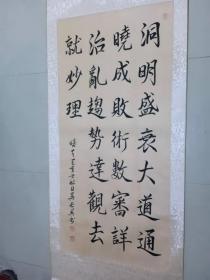 洞明盛衰大道通
曉成敗術數審詳
治亂趨勢達觀去
就妙理